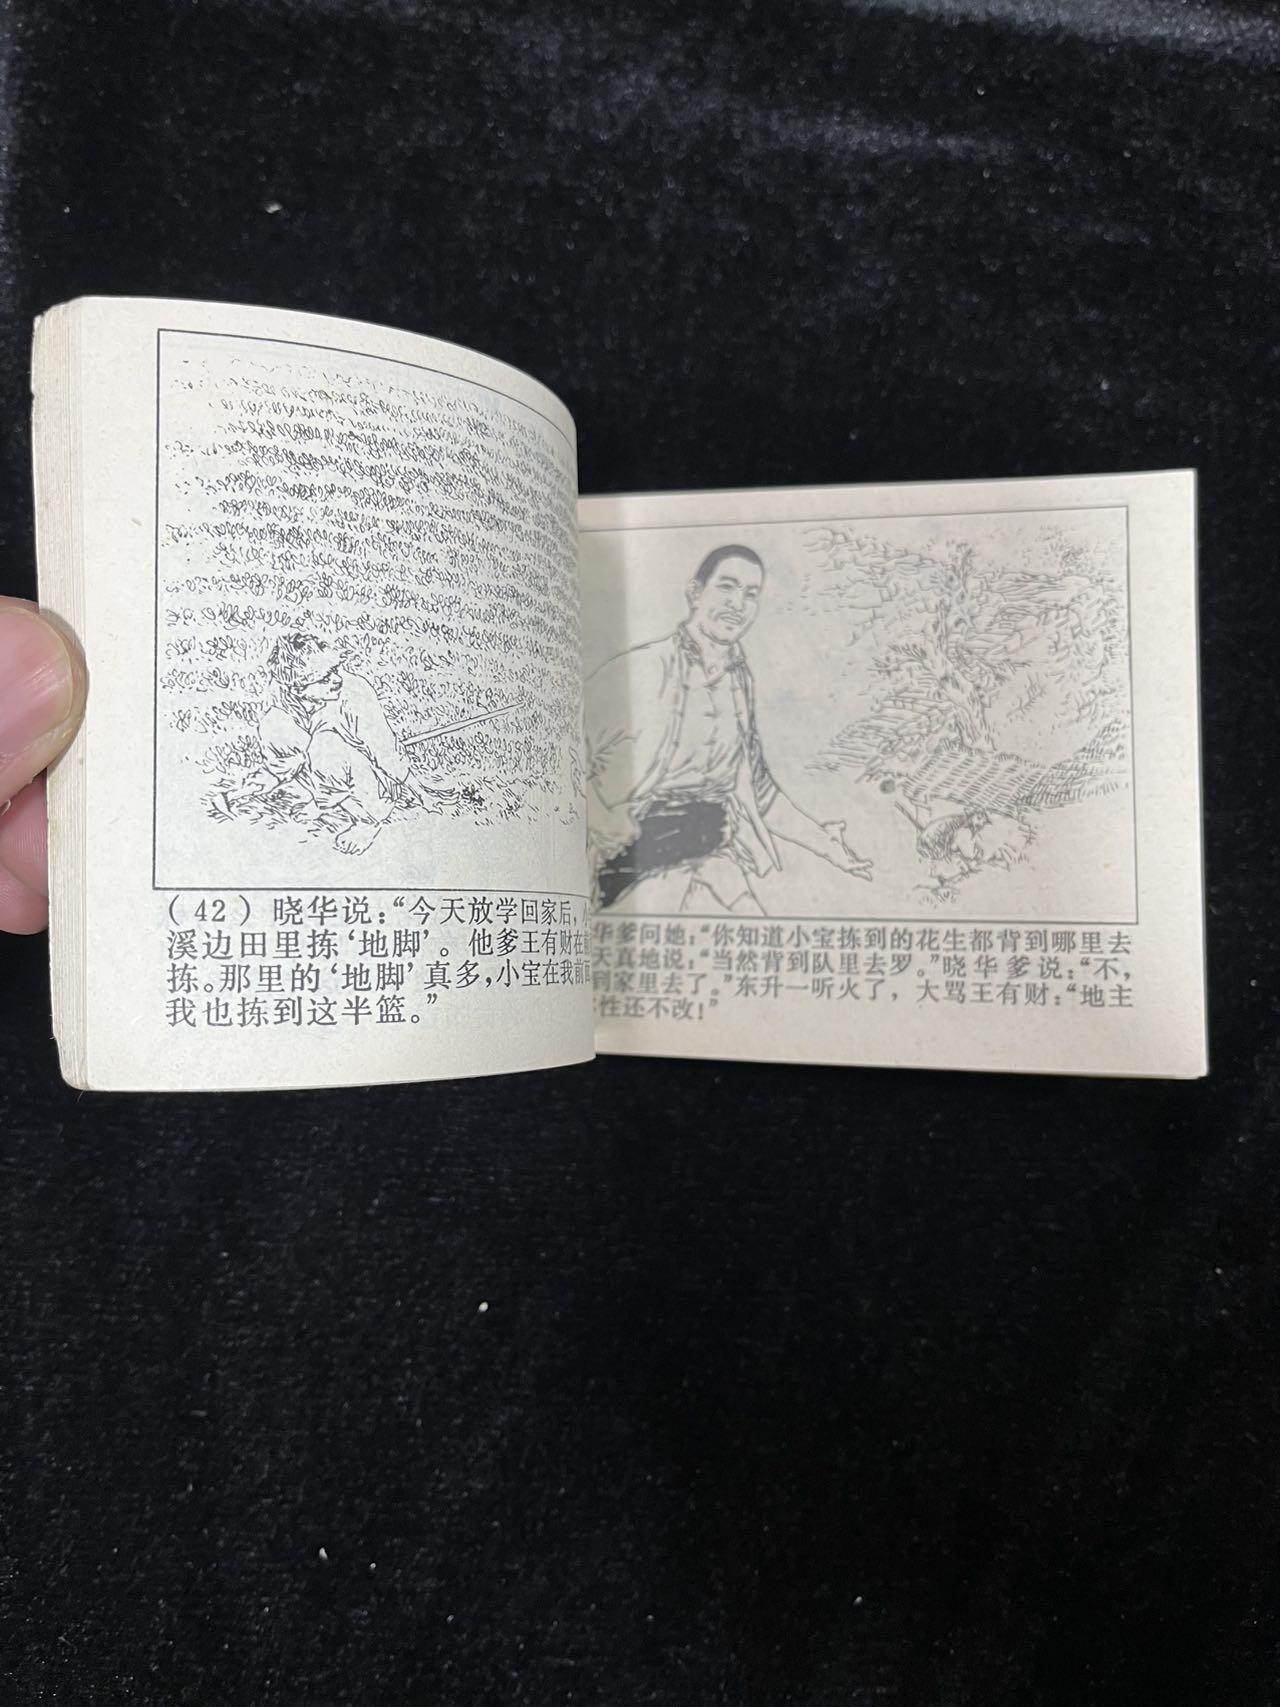 (42) 晓华说：“今天放学回家后，小
溪边田里拣‘地脚’。他爹王有财在前
拣。那里的‘地脚’真多，小宝在我前面
我也拣到这半篮。”
华爹问她：“你知道小宝拣到的花生都背到哪里去
天真地说：“当然背到队里去罗。”晓华爹说：“不，
到家里去了。”东升一听火了，大骂王有财：“地主
性还不改！”